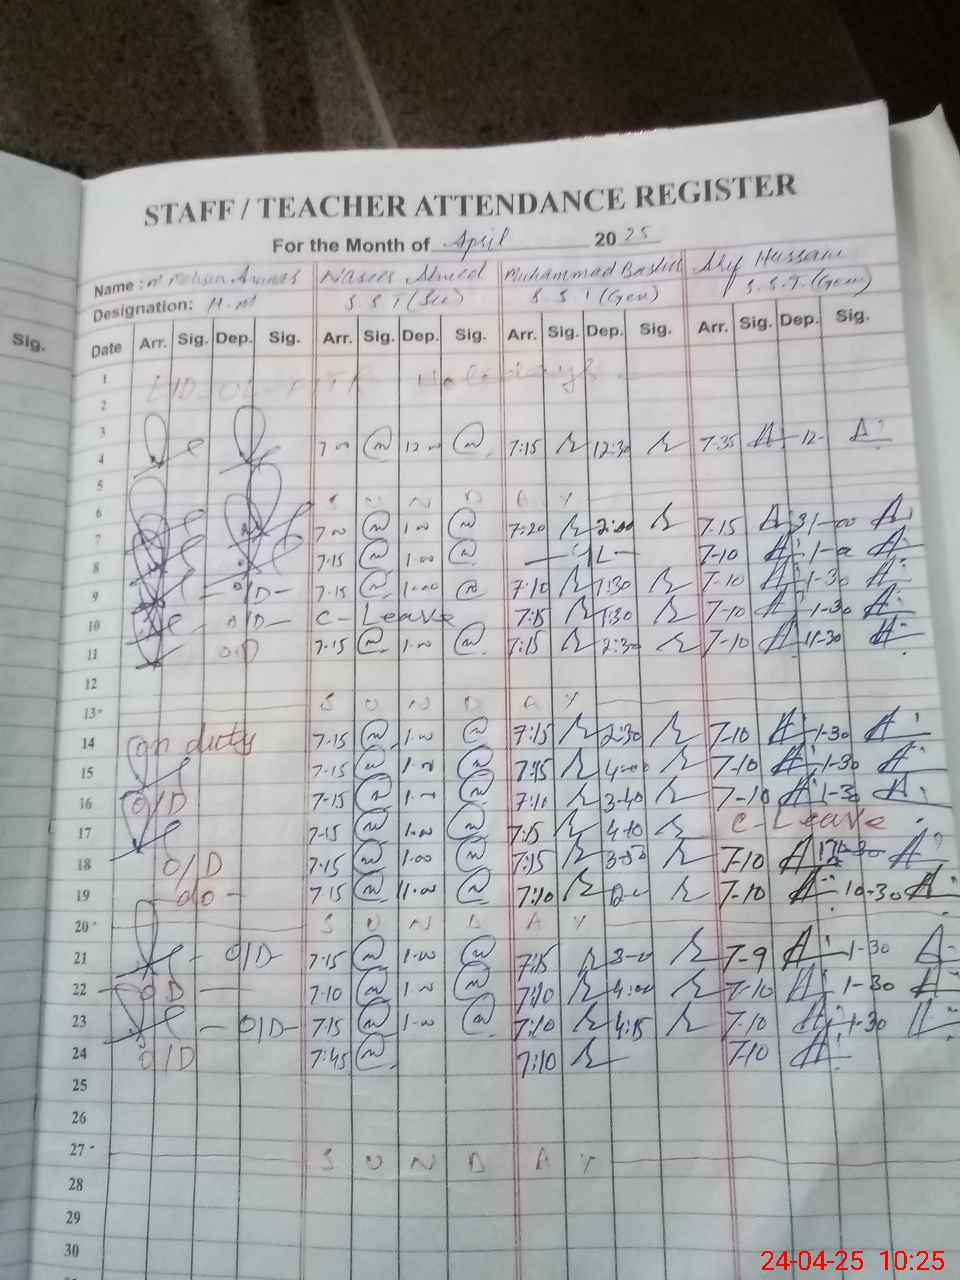 STAFF / TEACHER ATTENDANCE REGISTER
For the Month of April 2025
Name : M Mohsin Nasees Ahmed Muhammad Bashir Hussain
Designation: H.M S.S.T (Sci) S.S.T (Gen) S.S.T. (Gen)
Sig.
Date Arr. Sig. Dep. Sig. Arr. Sig. Dep. Sig. Arr. Sig. Dep. Sig. Arr. Sig. Dep. Sig.
1 EID-UL-FITR
2
3
4 7-00 12-00 7:15 12:30 7-35 12-
5
6 S U N D A Y
7 7-00 1-00 7:20 2:00 7-15
8 7-15 1-00 L 7-10
9 O/D 7-15 1-00 7:10 1:30 7-10 1-30
10 O/D C-Leave 7:15 1:30 7-10 1-30
11 O/D 7-15 1-00 7:15 2:30 7-10 11-30
12
13 S U N D A Y
14 on duty 7-15 1-00 7:15 2:30 7-10 1-30
15 7-15 1-00 7:15 4-00 7-10 1-30
16 O/D 7-15 1-00 7:10 3-40 7-10 1-30
17 7-15 1-00 7:15 4-10 C-Leave
18 O/D 7-15 1-00 7:15 3-50 7-10
19 -do- 7-15 11-00 7:10 7-10 10-30
20 S U N D A Y
21 O/D 7-15 1-00 7:15 3-0 7-9 1-30
22 O/D 7-10 1-00 7:10 4:00 7-10 1-30
23 O/D 7-15 1-00 7:10 4:15 7-10 1-30
24 O/D 7:45 7:10 7-10
25
26
27 S U N D A Y
28
29
30
24-04-25 10:25